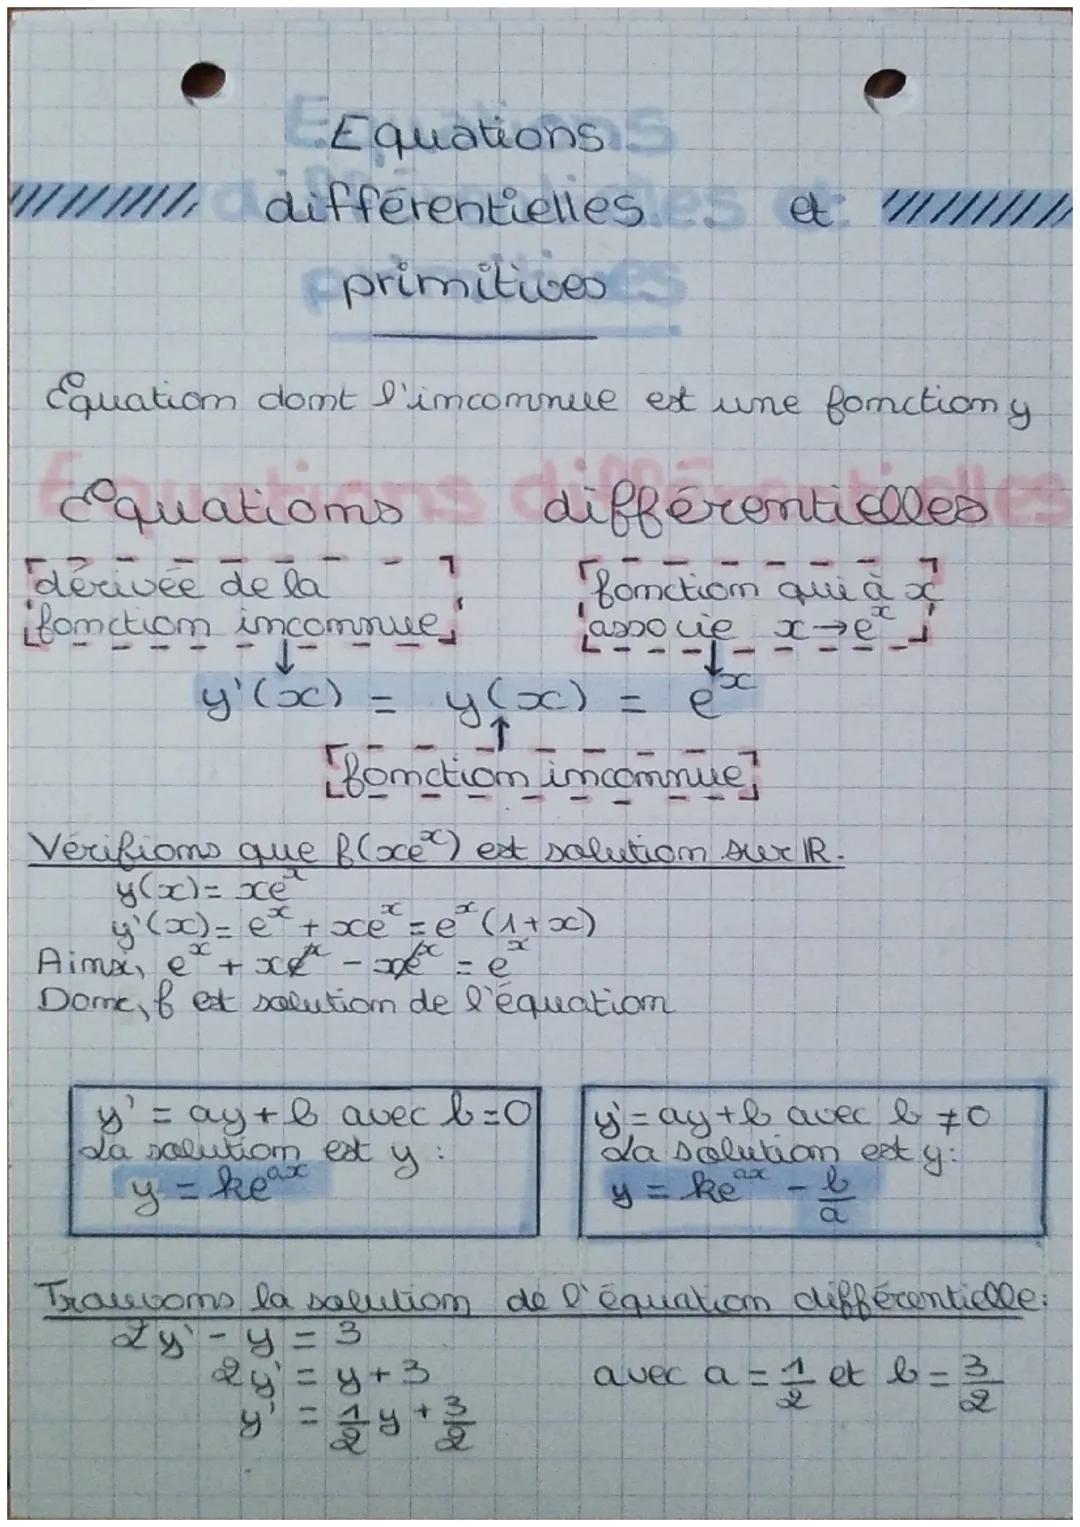 Equations
différentielles et
primitives
Equation dont l'inconnue est une fonction y
Equations différentielles
dérivée de la
fonction inconnue
fonction qui à x
associe x→eˣ
y'(x) = y(x) = eˣ
fonction inconnue
Vérifions que f(xeˣ) est solution sur ℝ.
y(x)= xeˣ
y'(x)= eˣ + xeˣ = eˣ(1+x)
Ainsi, eˣ + xeˣ - xeˣ = eˣ
Donc, f est solution de l'équation
y' = ay+b avec b=0
La solution est y :
y = keᵃˣ
y'= ay+b avec b ≠0
La solution est y:
y = keᵃˣ - b/a
Trouvons la solution de l'équation différentielle:
2y' - y = 3
2y' = y + 3 avec a = 1/2 et b = 3/2
y' = 1/2 y + 3/2